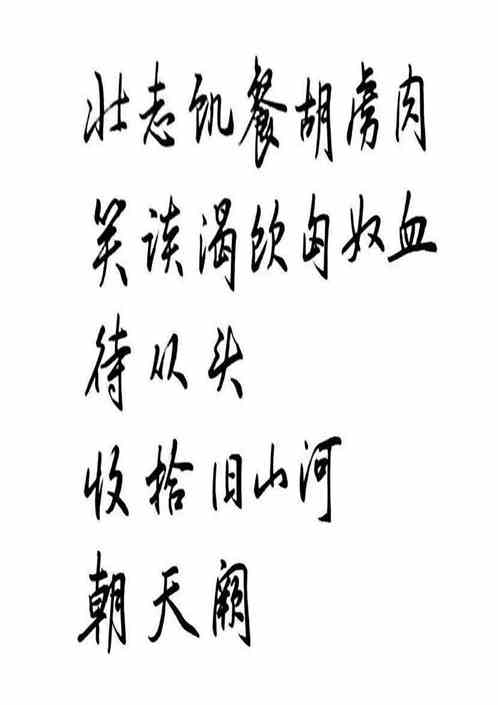 壮志饥餐胡虏肉
笑谈渴饮匈奴血
待从头
收拾旧山河
朝天阙